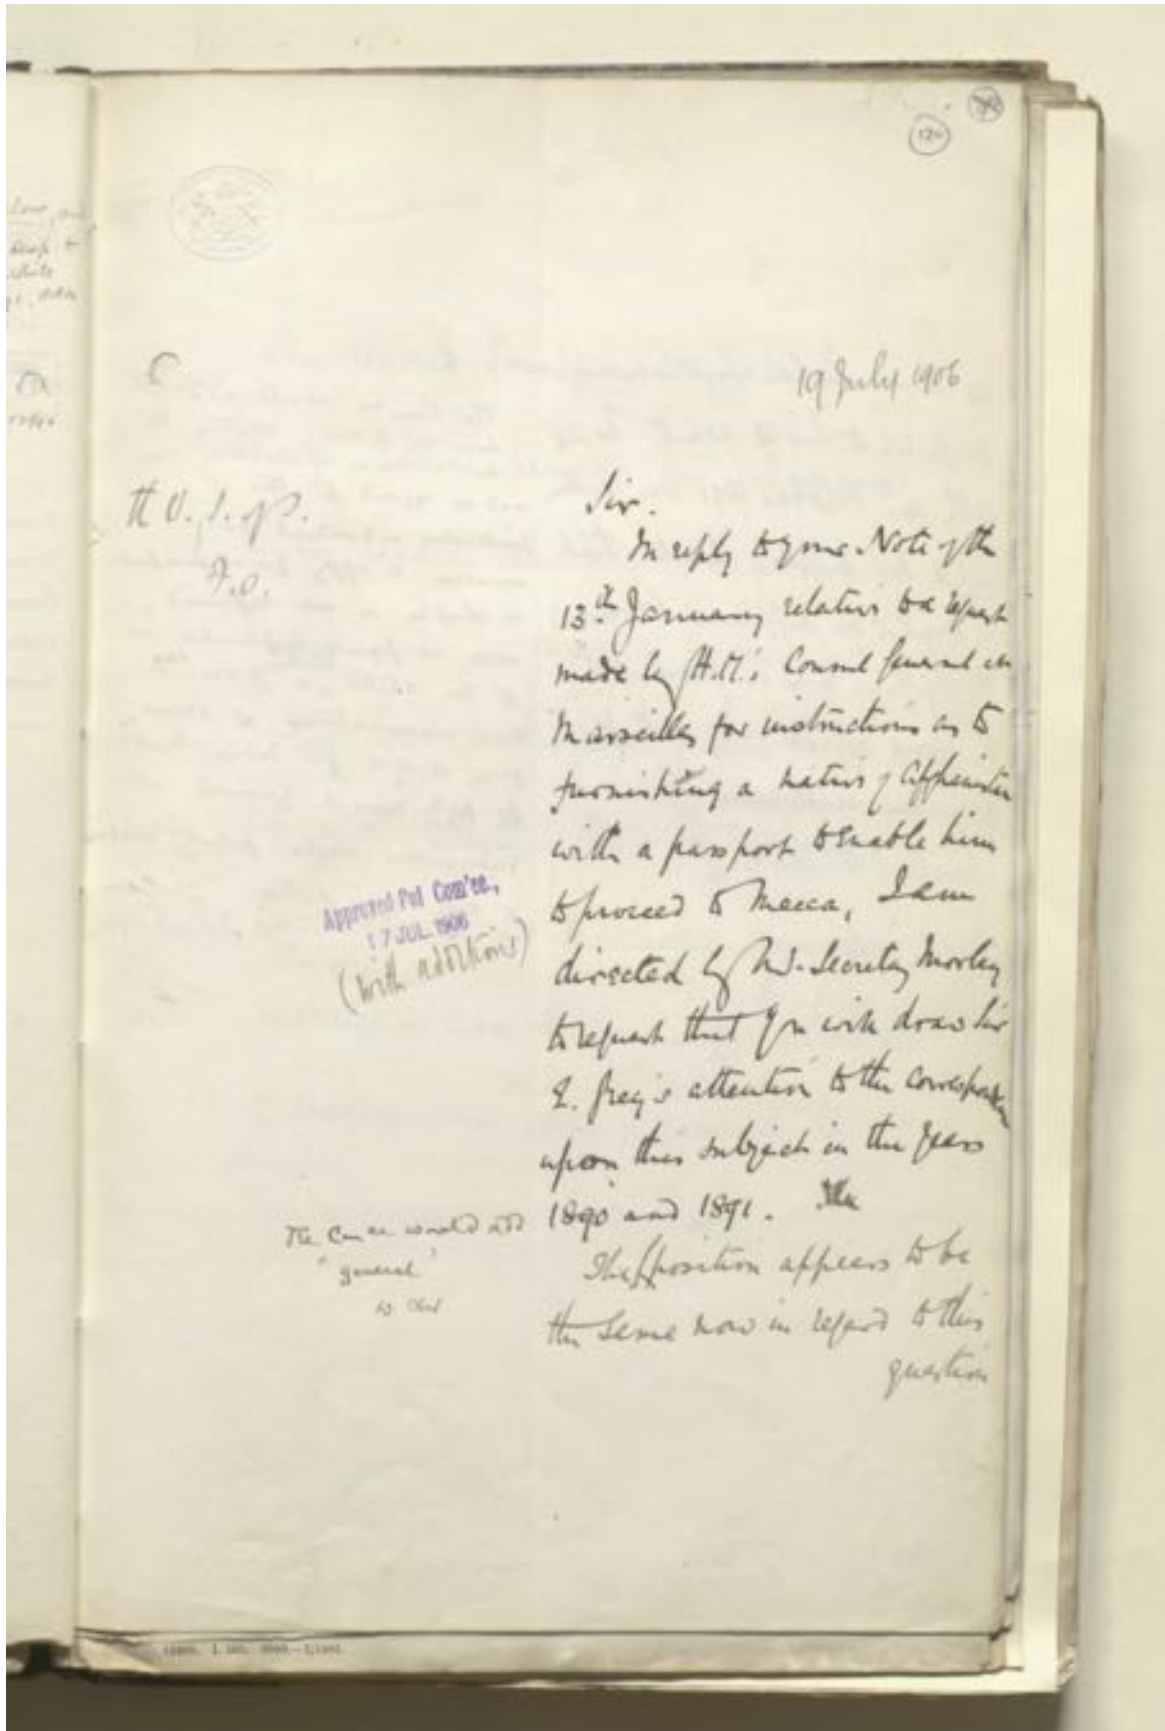 120
19 July 1906
C
H. U. S. of S.
F.O.
Sir.
In reply to your Note of the
13th January relative to a request
made by H.M.'s Consul General at
Marseilles for instructions as to
furnishing a native of Afghanistan
with a passport to enable him
to proceed to Mecca, I am
directed by Mr. Secretary Morley
to request that you will draw Sir
E. Grey's attention to the correspondence
upon this subject in the years
1890 and 1891. The
The position appears to be
the same now in regard to this
question
Approved Pol Com'ee.,
17 JUL 1906
(with additions)
The Cmee would add
"general"